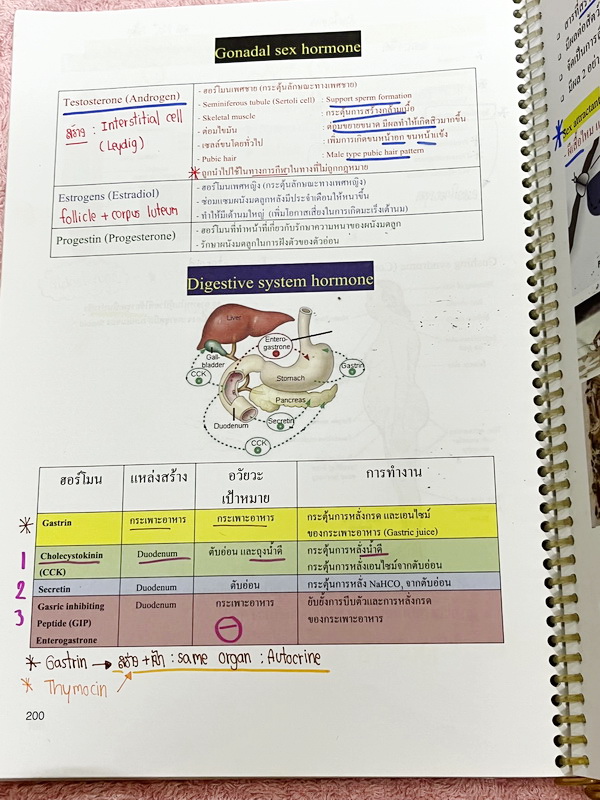 Gonadal sex hormone
Testosterone (Androgen)
สร้าง : Interstitial cell
(Leydig)
- ฮอร์โมนเพศชาย (กระตุ้นลักษณะทางเพศชาย)
- Seminiferous tubule (Sertoli cell) : Support sperm formation
- Skeletal muscle : กระตุ้นการสร้างกล้ามเนื้อ
- ต่อมไขมัน : ต่อมขยายขนาด มีผลทำให้เกิดสิวมากขึ้น
- เซลล์ขนโดยทั่วไป : เพิ่มการเกิดขนหน้าอก ขนหน้าแข้ง
- Pubic hair : Male type pubic hair pattern
* ถูกนำไปใช้ในทางการกีฬาในทางที่ไม่ถูกกฎหมาย
Estrogens (Estradiol)
follicle + corpus luteum
- ฮอร์โมนเพศหญิง (กระตุ้นลักษณะทางเพศหญิง)
- ซ่อมแซมผนังมดลูกหลังมีประจำเดือนให้หนาขึ้น
- ทำให้มีเต้านมใหญ่ (เพิ่มโอกาสเสี่ยงในการเกิดมะเร็งเต้านม)
Progestin (Progesterone)
- ฮอร์โมนที่ทำหน้าที่เกี่ยวกับรักษาความหนาของผนังมดลูก
- รักษาผนังมดลูกในการฝังตัวของตัวอ่อน
Digestive system hormone
Liver
Entero-
gastrone
Gall-
bladder
CCK
Stomach
Gastrin
Pancreas
Duodenum
Secretin
CCK
ฮอร์โมน แหล่งสร้าง อวัยวะ การทำงาน
เป้าหมาย
* Gastrin กระเพาะอาหาร กระเพาะอาหาร กระตุ้นการหลั่งกรด และเอนไซม์
ของกระเพาะอาหาร (Gastric juice)
1 Cholecystokinin Duodenum ตับอ่อน และถุงน้ำดี กระตุ้นการหลั่งน้ำดี
(CCK) กระตุ้นการหลั่งเอนไซม์จากตับอ่อน
2 Secretin Duodenum ตับอ่อน กระตุ้นการหลั่ง NaHCO₃ จากตับอ่อน
3 Gasric inhibiting Duodenum กระเพาะอาหาร ยับยั้งการบีบตัวและการหลั่งกรด
Peptide (GIP) ของกระเพาะอาหาร
Enterogastrone
* Gastrin → สร้าง + : same organ : Autocrine
* Thymocin
200